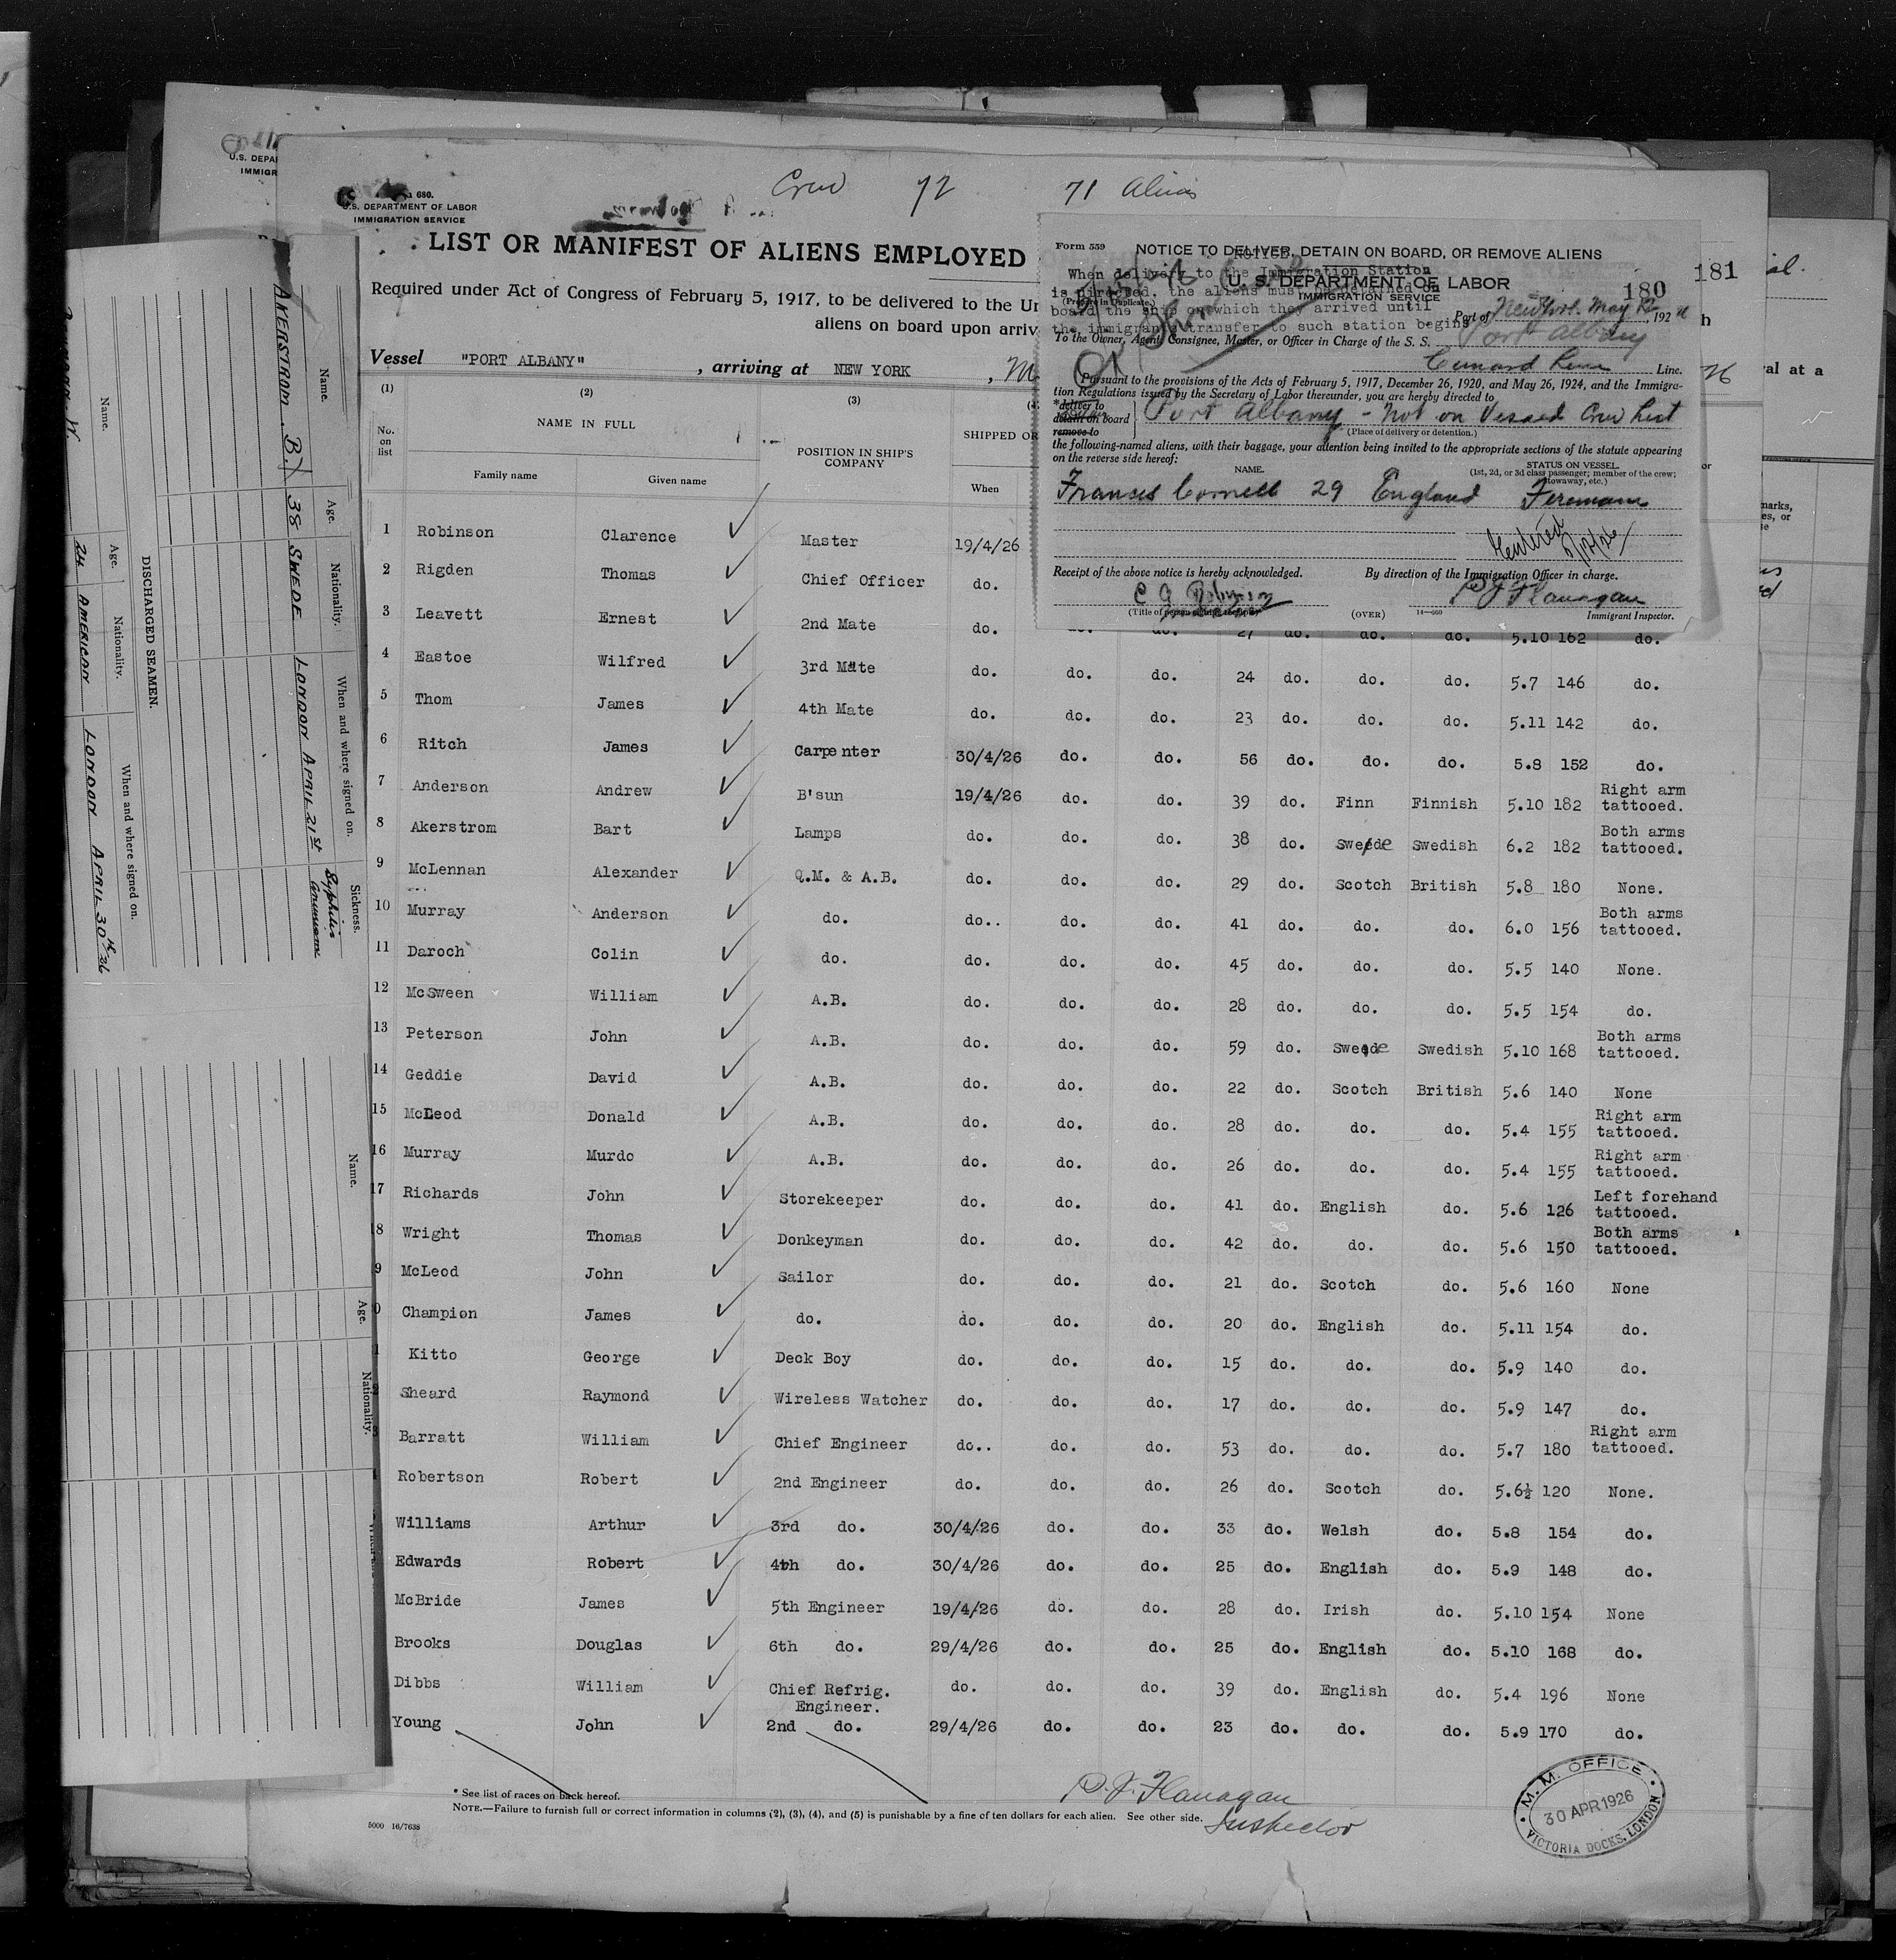 U.S. DEPAR
IMMIGR
680.
U.S. DEPARTMENT OF LABOR
IMMIGRATION SERVICE
Crew 72 71 Aliens
LIST OR MANIFEST OF ALIENS EMPLOYED
Required under Act of Congress of February 5, 1917, to be delivered to the Un
aliens on board upon arriv
Vessel "PORT ALBANY" , arriving at NEW YORK , M
(1) (2) (3)
No. on list
NAME IN FULL
Family name Given name
POSITION IN SHIP'S COMPANY
SHIPPED OR
When
1 Robinson Clarence ✓ Master 19/4/26
2 Rigden Thomas ✓ Chief Officer do.
3 Leavett Ernest ✓ 2nd Mate do. do. do. 27 do. do. do. 5.10 162 do.
4 Eastoe Wilfred ✓ 3rd Mate do. do. do. 24 do. do. do. 5.7 146 do.
5 Thom James ✓ 4th Mate do. do. do. 23 do. do. do. 5.11 142 do.
6 Ritch James ✓ Carpenter 30/4/26 do. do. 56 do. do. do. 5.8 152 do.
7 Anderson Andrew ✓ B'sun 19/4/26 do. do. 39 do. Finn Finnish 5.10 182 Right arm tattooed.
8 Akerstrom Bart ✓ Lamps do. do. do. 38 do. Swede Swedish 6.2 182 Both arms tattooed.
9 McLennan Alexander ✓ Q.M. & A.B. do. do. do. 29 do. Scotch British 5.8 180 None.
10 Murray Anderson ✓ do. do.. do. do. 41 do. do. do. 6.0 156 Both arms tattooed.
11 Daroch Colin ✓ do. do. do. do. 45 do. do. do. 5.5 140 None.
12 McSween William ✓ A.B. do. do. do. 28 do. do. do. 5.5 154 do.
13 Peterson John ✓ A.B. do. do. do. 59 do. Swede Swedish 5.10 168 Both arms tattooed.
14 Geddie David ✓ A.B. do. do. do. 22 do. Scotch British 5.6 140 None
15 McLeod Donald ✓ A.B. do. do. do. 28 do. do. do. 5.4 155 Right arm tattooed.
16 Murray Murdo ✓ A.B. do. do. do. 26 do. do. do. 5.4 155 Right arm tattooed.
17 Richards John ✓ Storekeeper do. do. do. 41 do. English do. 5.6 126 Left forehand tattooed.
8 Wright Thomas ✓ Donkeyman do. do. do. 42 do. do. do. 5.6 150 Both arms tattooed.
9 McLeod John ✓ Sailor do. do. do. 21 do. Scotch do. 5.6 160 None
0 Champion James ✓ do. do. do. do. 20 do. English do. 5.11 154 do.
1 Kitto George ✓ Deck Boy do. do. do. 15 do. do. do. 5.9 140 do.
Sheard Raymond ✓ Wireless Watcher do. do. do. 17 do. do. do. 5.9 147 do.
Barratt William ✓ Chief Engineer do.. do. do. 53 do. do. do. 5.7 180 Right arm tattooed.
Robertson Robert ✓ 2nd Engineer do. do. do. 26 do. Scotch do. 5.6½ 120 None.
Williams Arthur ✓ 3rd do. 30/4/26 do. do. 33 do. Welsh do. 5.8 154 do.
Edwards Robert ✓ 4th do. 30/4/26 do. do. 25 do. English do. 5.9 148 do.
McBride James ✓ 5th Engineer 19/4/26 do. do. 28 do. Irish do. 5.10 154 None
Brooks Douglas ✓ 6th do. 29/4/26 do. do. 25 do. English do. 5.10 168 do.
Dibbs William ✓ Chief Refrig. Engineer. do. do. do. 39 do. English do. 5.4 196 None
Young John ✓ 2nd do. 29/4/26 do. do. 23 do. do. do. 5.9 170 do.
* See list of races on back hereof.
NOTE.—Failure to furnish full or correct information in columns (2), (3), (4), and (5) is punishable by a fine of ten dollars for each alien. See other side.
5000 16/7638
P.J. Flanagan
Inspector
M. M. OFFICE
30 APR 1926
VICTORIA DOCKS, LONDON
Form 559
NOTICE TO DELIVER, DETAIN ON BOARD, OR REMOVE ALIENS
NOTICE
When delivery to the Immigration Station
is directed, the aliens must be detained on
board the ship on which they arrived until
the immigrants transfer to such station begins
U. S. DEPARTMENT OF LABOR
IMMIGRATION SERVICE
(Prepare in Duplicate.)
180
Port of New York. May 12, 192
To the Owner, Agent, Consignee, Master, or Officer in Charge of the S. S. Port Albany
Cunard Line Line.
Pursuant to the provisions of the Acts of February 5, 1917, December 26, 1920, and May 26, 1924, and the Immigra-
tion Regulations issued by the Secretary of Labor thereunder, you are hereby directed to
*deliver to
detain on board
remove to
Port Albany - Not on Vessel Crew List
(Place of delivery or detention.)
the following-named aliens, with their baggage, your attention being invited to the appropriate sections of the statute appearing
on the reverse side hereof:
NAME.
STATUS ON VESSEL.
(1st, 2d, or 3d class passenger; member of the crew;
stowaway, etc.)
Francis Cornell 29 England Fireman
5/12/26
Receipt of the above notice is hereby acknowledged.
By direction of the Immigration Officer in charge.
C G Robinson
P J Flanagan
(OVER)
14—660
Immigrant Inspector.
181
h
al at a
26
or
marks,
es, or
se
Name. Age. Nationality. When and where signed on. Sickness.
AKERSTROM. B. 38 SWEDE LONDON APRIL 21st Syphilis
DISCHARGED SEAMEN.
Name. Age. Nationality. When and where signed on.
W. 24 AMERICAN LONDON APRIL 30th 26
Name. Age. Nationality.